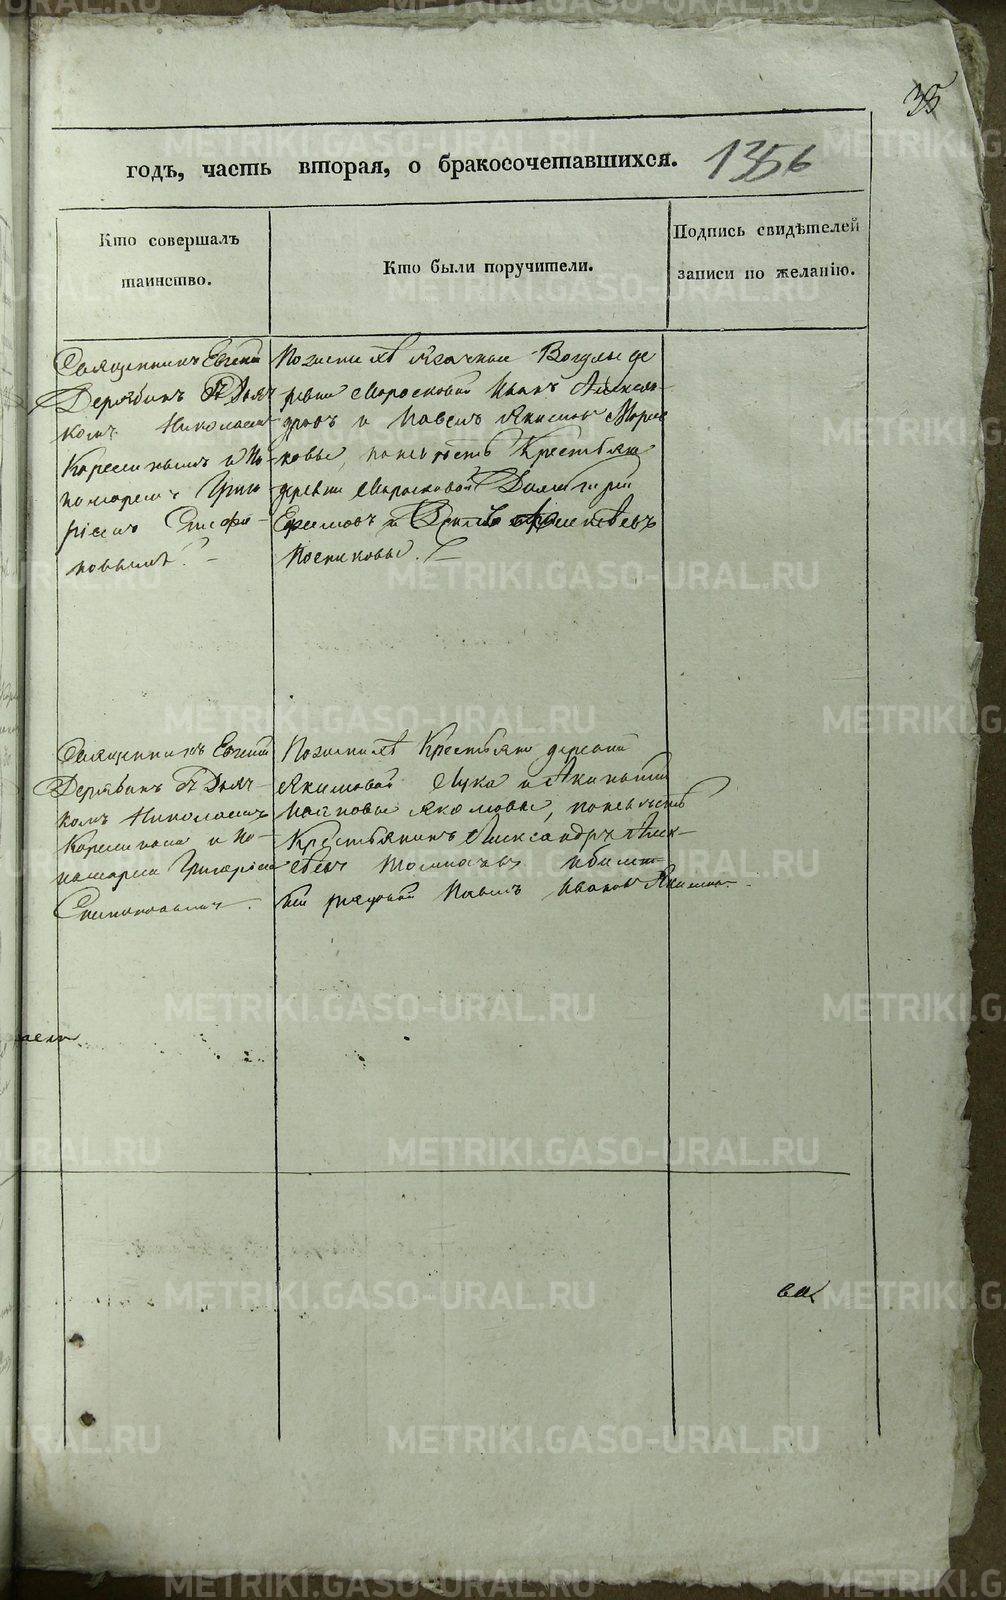 35
годъ, часть вторая, о бракосочетавшихся. 1356
Кто совершалъ
таинство.
Кто были поручители.
Подпись свидѣтелей
записи по желанію.
Священникъ Евгеній
Дерябинъ съ Дьяч
комъ Николаемъ
Карелинымъ и По-
номаремъ Григо
ріемъ
Позженихѣ Ясачные Вогулы де
ревни Моросковой Иванъ Алексан-
дровъ и Павелъ Якимовъ Морос
ковы, поневѣстѣ Крестьяне
деревни Моросковой Димитрій
Ефимовъ и Алексѣевъ
Посниковы.
Священникъ Евгеній
Дерябинъ съ Дьяч-
комъ Николаемъ
Карелинымъ и по-
номаремъ Григоріемъ
Позженихѣ Крестьяне деревни
Якимовой Лука и
Якимовы, поневѣстѣ
Крестьянинъ Александръ Алек-
сѣевъ
рядовой Павелъ Ивановъ Якимов
ва
METRIKI.GASO-URAL.RU